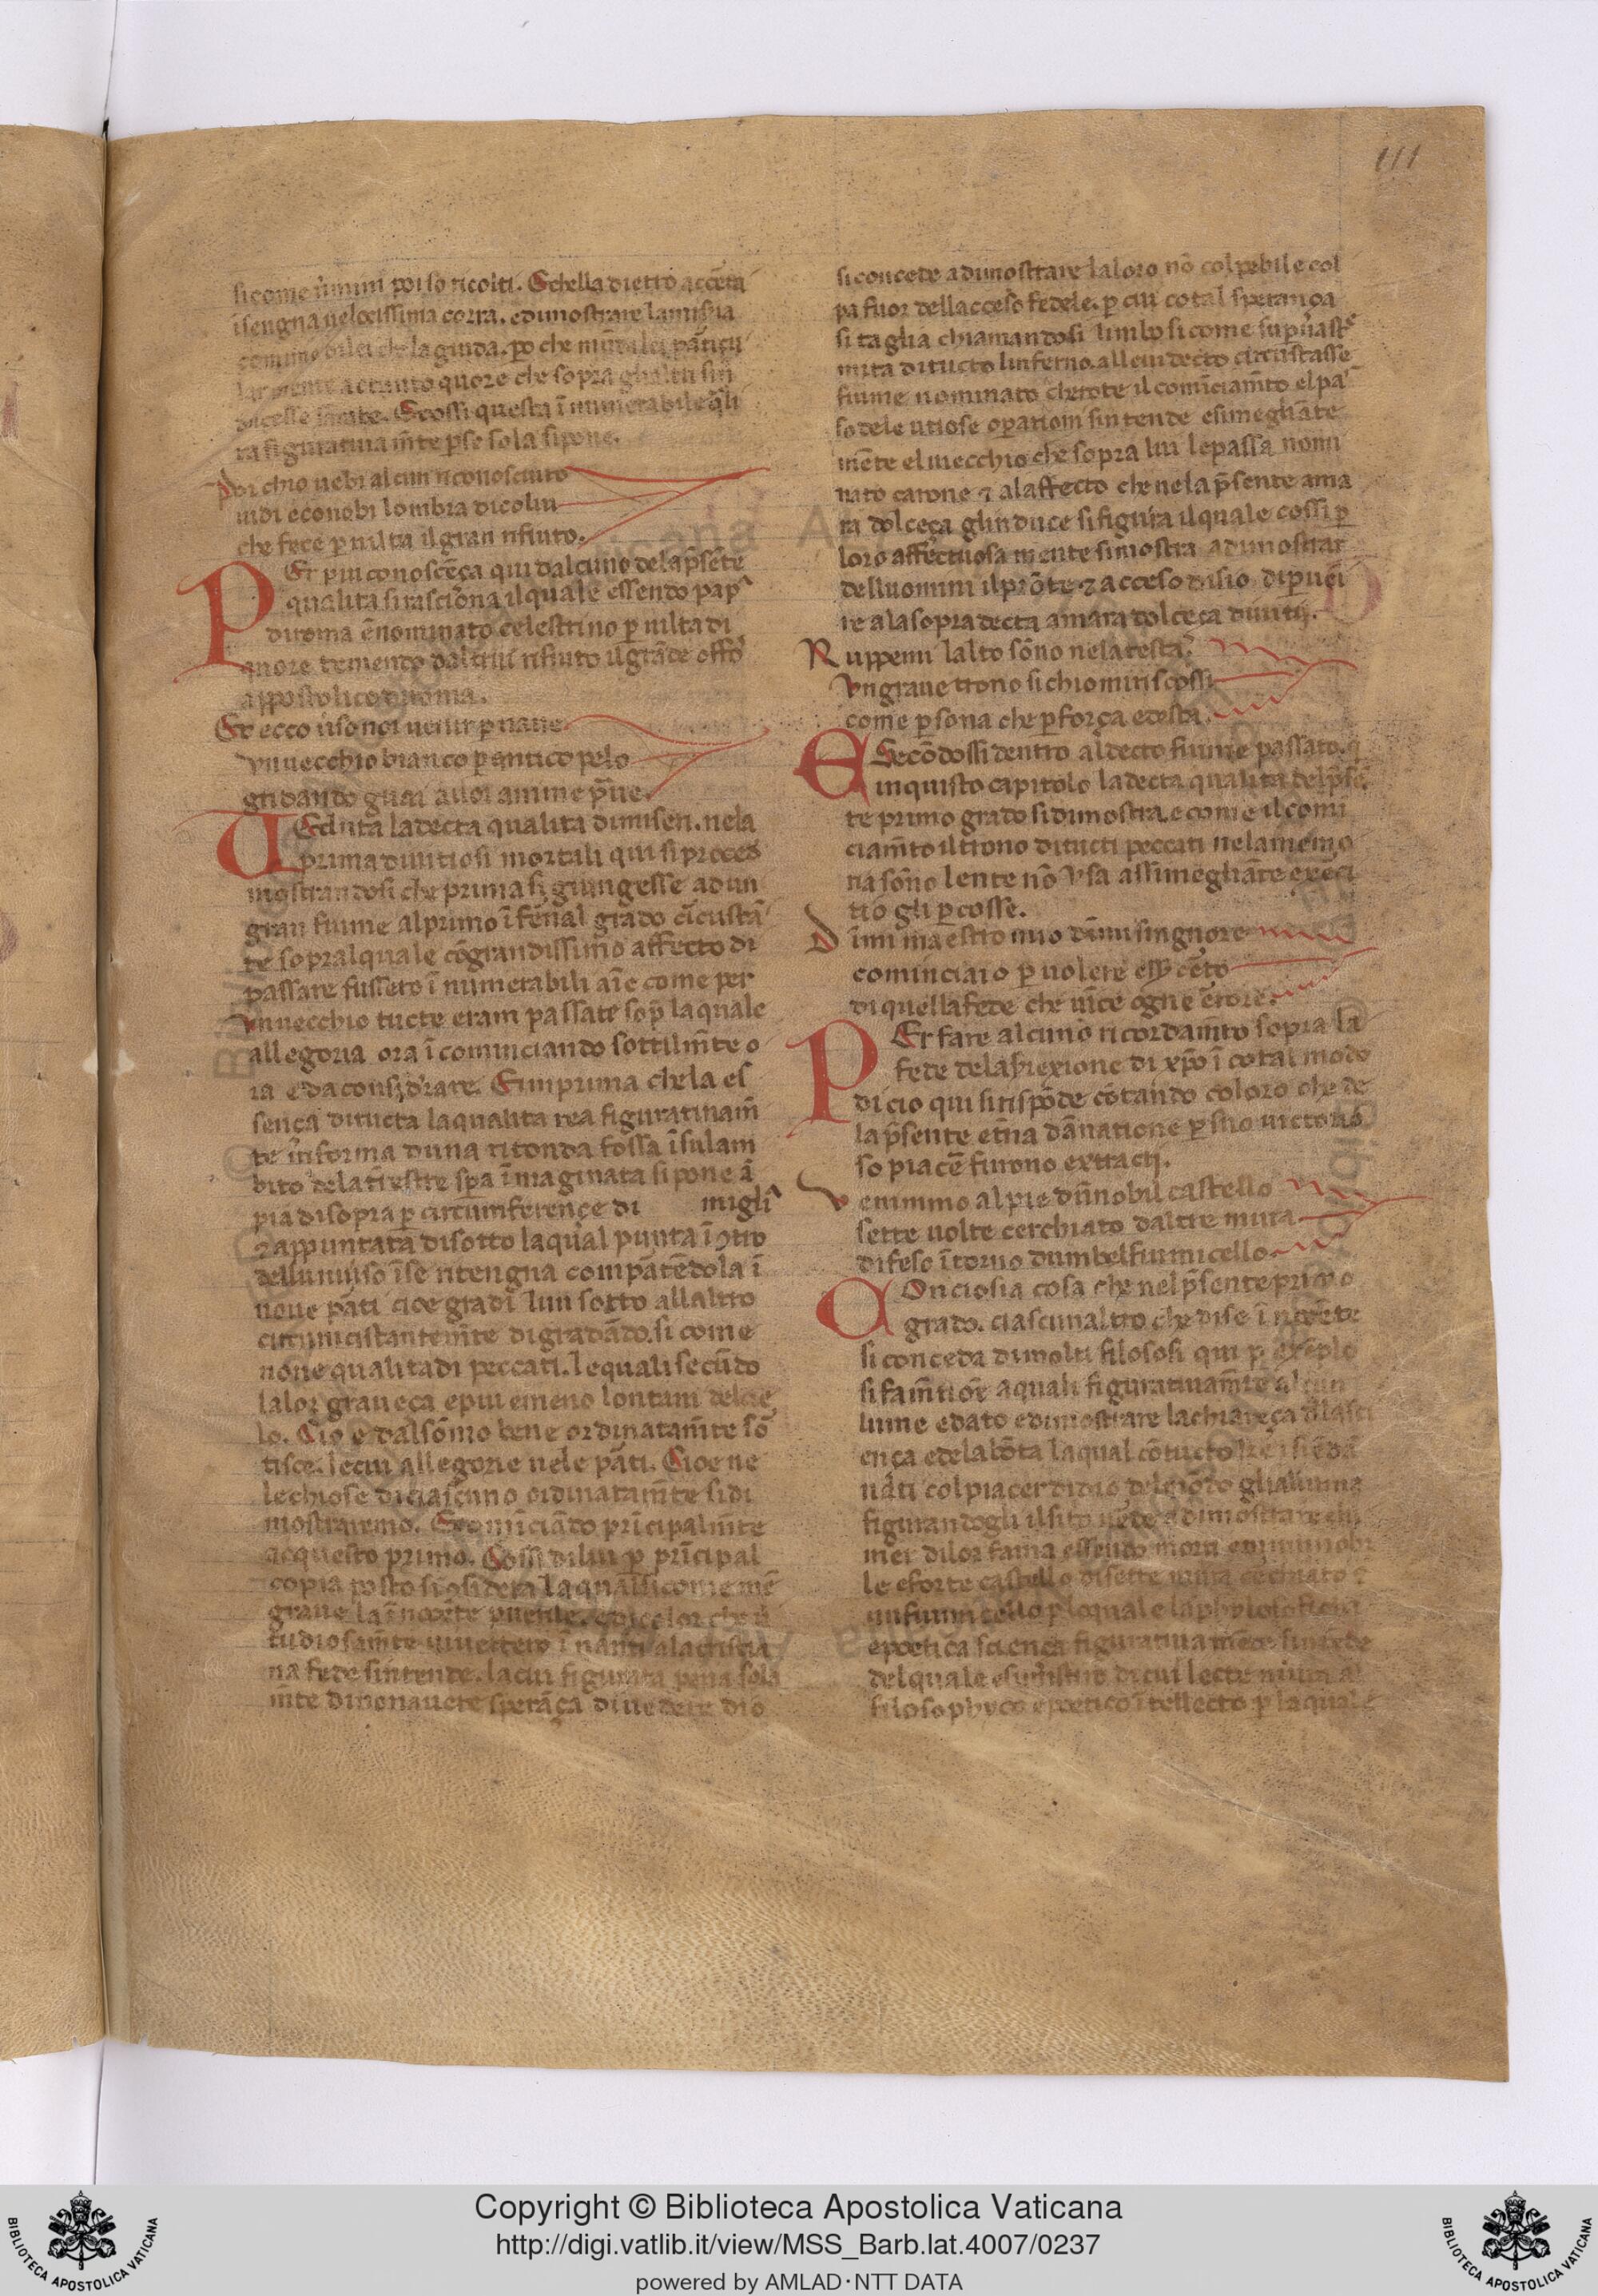 111
si come vimini poi so ricolti. Et ella dietro a cčeta
isengna velocissima corra. e dimostrare la misia
comuno
ra figurativa m̄te p̲se sola si pone.
Poi chio vebi alcun riconosciuto
vidi e conobi lombra di colui
che fece p̲ vilta il gran rifiuto.
PEr piu conoscēça qui dalcuno dela p̄sēte
qualita si rasciona il quale essendo papᵃ
di roma e nominato celestrino p̲ vilta di
quore temendo daltrui rifiuto il grāde offᵒ
appostolico di roma.
Et ecco v̓so noi venir p̲ nave
vn vecchio bianco p̲ antico pelo
gridando guai a voi anime p̄ve.
VEduta la decta qualita di miseri. nela
prima di vitiosi mortali qui si proced
mostrandosi che prima si giungesse ad un
gran fiume al primo īfernal grado circustā
te sopralquale cō grandissimo affecto di
passare fussero ī numerabili aīe come per
vn vecchio tucte eram passate sop̄ la quale
allegoria ora ī cominciando sottilm̄te o
ra e da considerare. E inprima che la es
sença di tucta la qualita rea figurativam̄
te in forma duna ritonda fossa ī sul am
bito dela trestre sp̲a īmaginata si pone ā
pia di sopra p̲ circumferençe di migliᵃ
⁊ appuntata di sotto la qual punta ī ꝯtro
delluniv̓so ī se ritengna compartēdola ī
nove parti cioe gradi lun sotto allaltro
circumcistantem̄te digradādo. si come
nove qualita di peccati. le quali secūdo
la lor graveça e piu e meno lontani del cie
lo. Cio e dal sōmo bene ordinatam̄te sō
tisce. le cui allegorie nele pāti. Cioe ne
le chiose di ciascuno ordinatam̄te si di
mostrarrno. E cominciādo principalm̄te
acquesto primo. Cossi di lui p̲ principal
copia posto si ꝯsidera la qual si come mē
grave la īnocēte puerile. e di color che v̓
tudiosam̄te vivettero ī nanti ala cristia
na fede sintende. la cui figurata pena sola
m̄te di non avere sperāça di vedere dio
si concede a dimostrare la loro nō colpebile col
pa fuor dellacceso fedele. p̲ cui cotal sperança
si taglia chiamandosi limbo si come sup̲v̓asᵗᵉ
mita di tucto linferno. all cui decto circustasse
fiume nominato cherote il comīciam̄to el pa
so dele vitiose op̲ationi sintende e simeghiāte
mēte el vecchio che sopra lui le passa nomi
nato carone ⁊ alaffecto che nela p̄sente ama
ra dolceça gl induce si figura il quale cossi p̲
loro affectuosa mente simostra a dimostrar
delluomini il prōte ⁊ acceso disio di p̲veni
re ala sopradecta amara dolceça di vitij.
Ruppemi lalto sōno nela testa.
Vn grave trono si chio mi riscossi
come p̲sona che p̲ força e desta.
ESecōdossi dentro al decto fiume passato. q
in questo capitolo la decta qualita del p̄sē
te primo grado si dimostra. e come il comi
ciam̄to il trono di tucti peccati nela memo
ria sōno lente nō vsa assimeghiāte exerci
tio gli p̲cosse.
Dimi maestro mio dimi singnore
cominciaio p̲ volere ess̓ cērto
di quella fede che vīce ogne errore.
PEr fare alcuno ricordam̄to sopra la
fede dela p̄rexione di xp̄o ī cotal modo
di cio qui si rispōde cōtando coloro che de
la p̄sente etn̄a dānatione p̲ suo victorio
so piacē furono extracti.
Venimmo al pie dun nobil castello
sette volte cerchiato dalte mura
difeso ītorno dumbel fiumicello.
COnciosia cosa che nel p̄sente primo
grado. ciascunaltro che di se ī nocēte
si conceda di molti filosofi qui p̲ exēplo
si fa m̄tiōe a quali figurativam̄te alcun
lume e dato e dimostrare la chiareça dela sci
ença e dela bōta la qual cō tucto
nati col piacer di dio del mōdo gli allumina
figurandogli il sito vede a dimostrare chi
mer di lor fama essendo morti en un nobi
le e forte castello di sette mura cerchiato ⁊
un fiumicello p̲ lo quale la phylosofica
e poetica sciença figurativa mēte sintēde
del quale
filosophyco e poetico ī tellecto p̲ la quale
Copyright © Biblioteca Apostolica Vaticana
http://digi.vatlib.it/view/MSS_Barb.lat.4007/0237
powered by AMLAD·NTT DATA
BIBLIOTECA APOSTOLICA VATICANA
BIBLIOTECA APOSTOLICA VATICANA